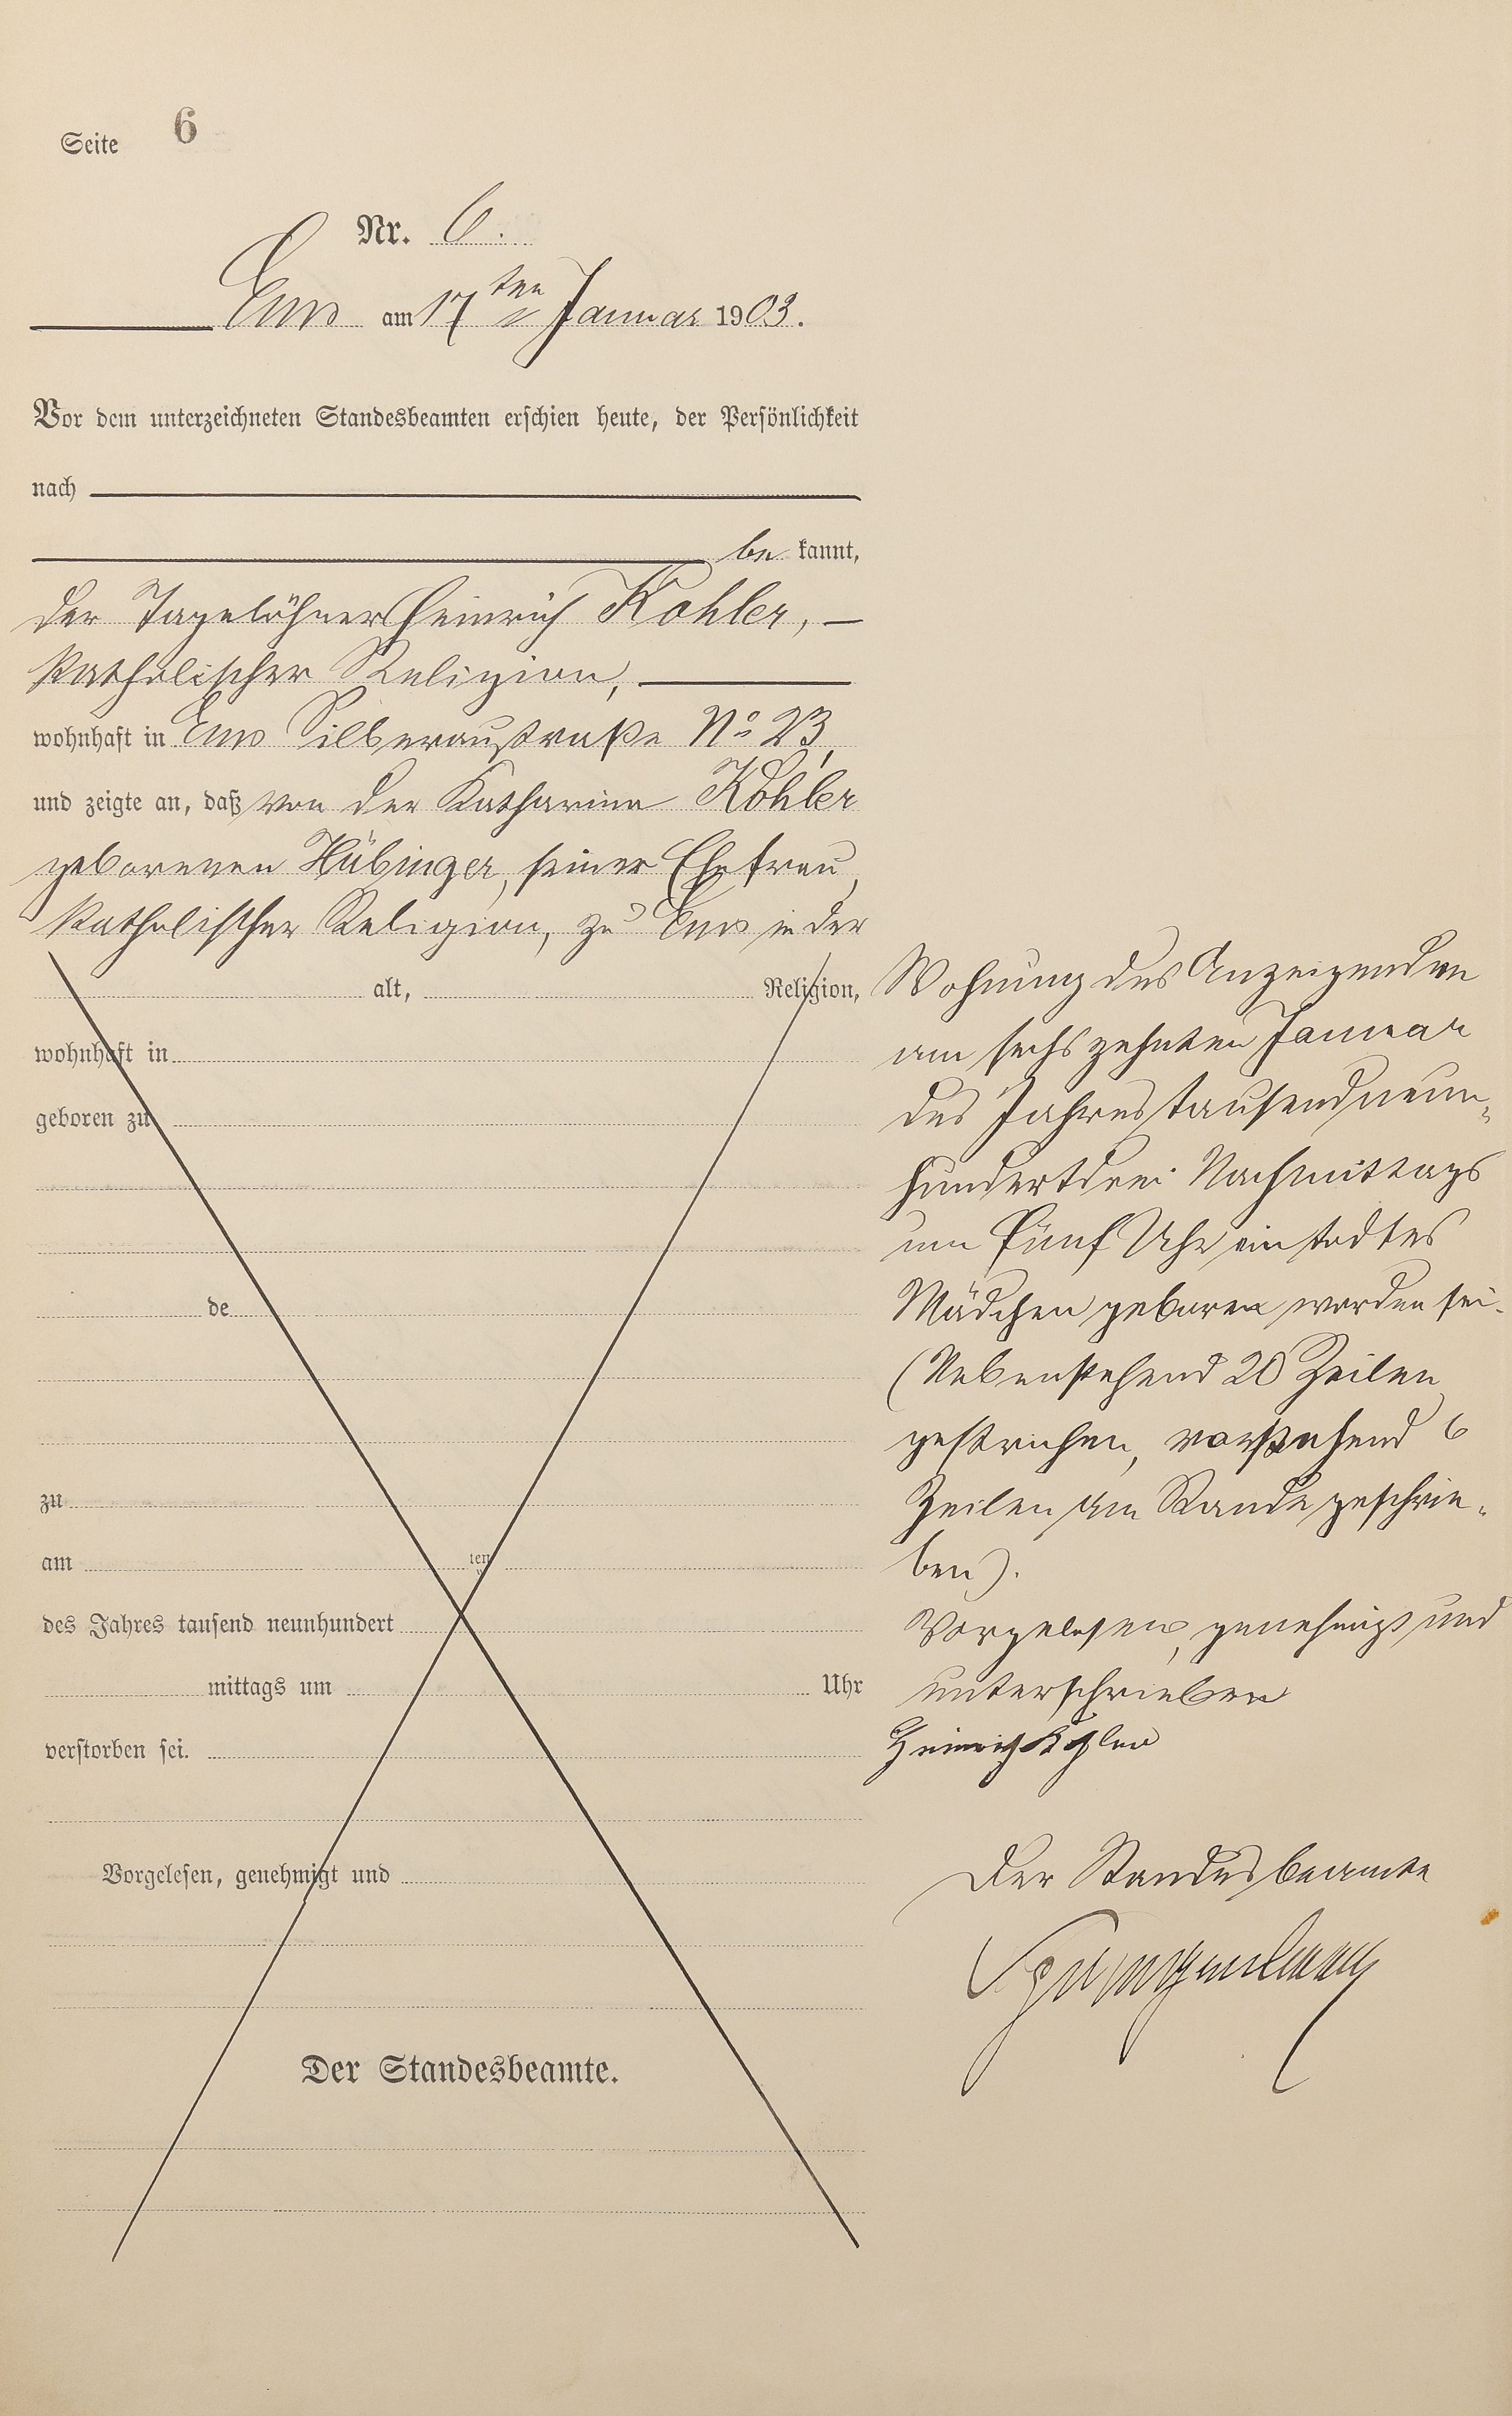 Seite 6
Nr. 6.
Ems am 17ten Januar 1903.
Vor dem unterzeichneten Standesbeamten erschien heute, der Persönlichkeit
nach
be kannt,
der Tagelöhner Heinrich Kohler,
katholischer Religion,
wohnhaft in Ems Silberaustraße No 23,
und zeigte an, daß von der Katharina Kohler
geborenen Hübinger, seiner Ehefrau,
katholischer Religion, zu Ems in der
alt, Religion,
wohnhaft in
geboren zu
de
zu
am ten
des Jahres tausend neunhundert
mittags um Uhr
verstorben sei.
Vorgelesen, genehmigt und
Der Standesbeamte.
Wohnung des Anzeigenden
am sechszehnten Januar
des Jahres tausendneun-
hundertdrei Nachmittags
um Fünf Uhr ein todtes
Mädchen geboren worden sei.
(Nebenstehend 20 Zeilen
gestrichen, vorstehend 6
Zeilen am Rande geschrie-
ben).
Vorgelesen, genehmigt und
unterschrieben
Heinrich Kohler
Der Standesbeamte